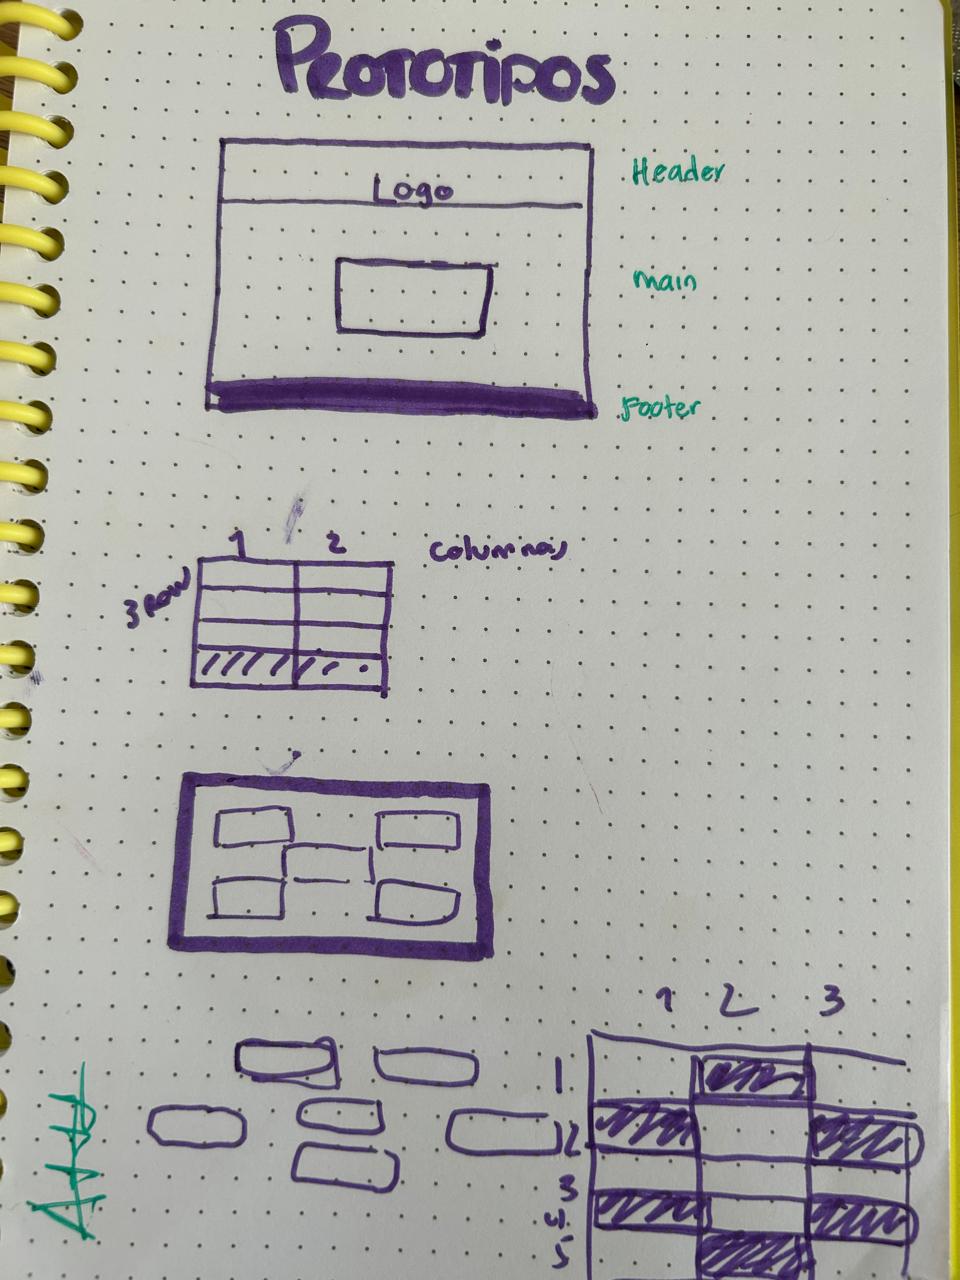 Prototipos
Header
Logo
main
Footer
1 2 columnas
3 row
1 2 3
1
2
3
4
5